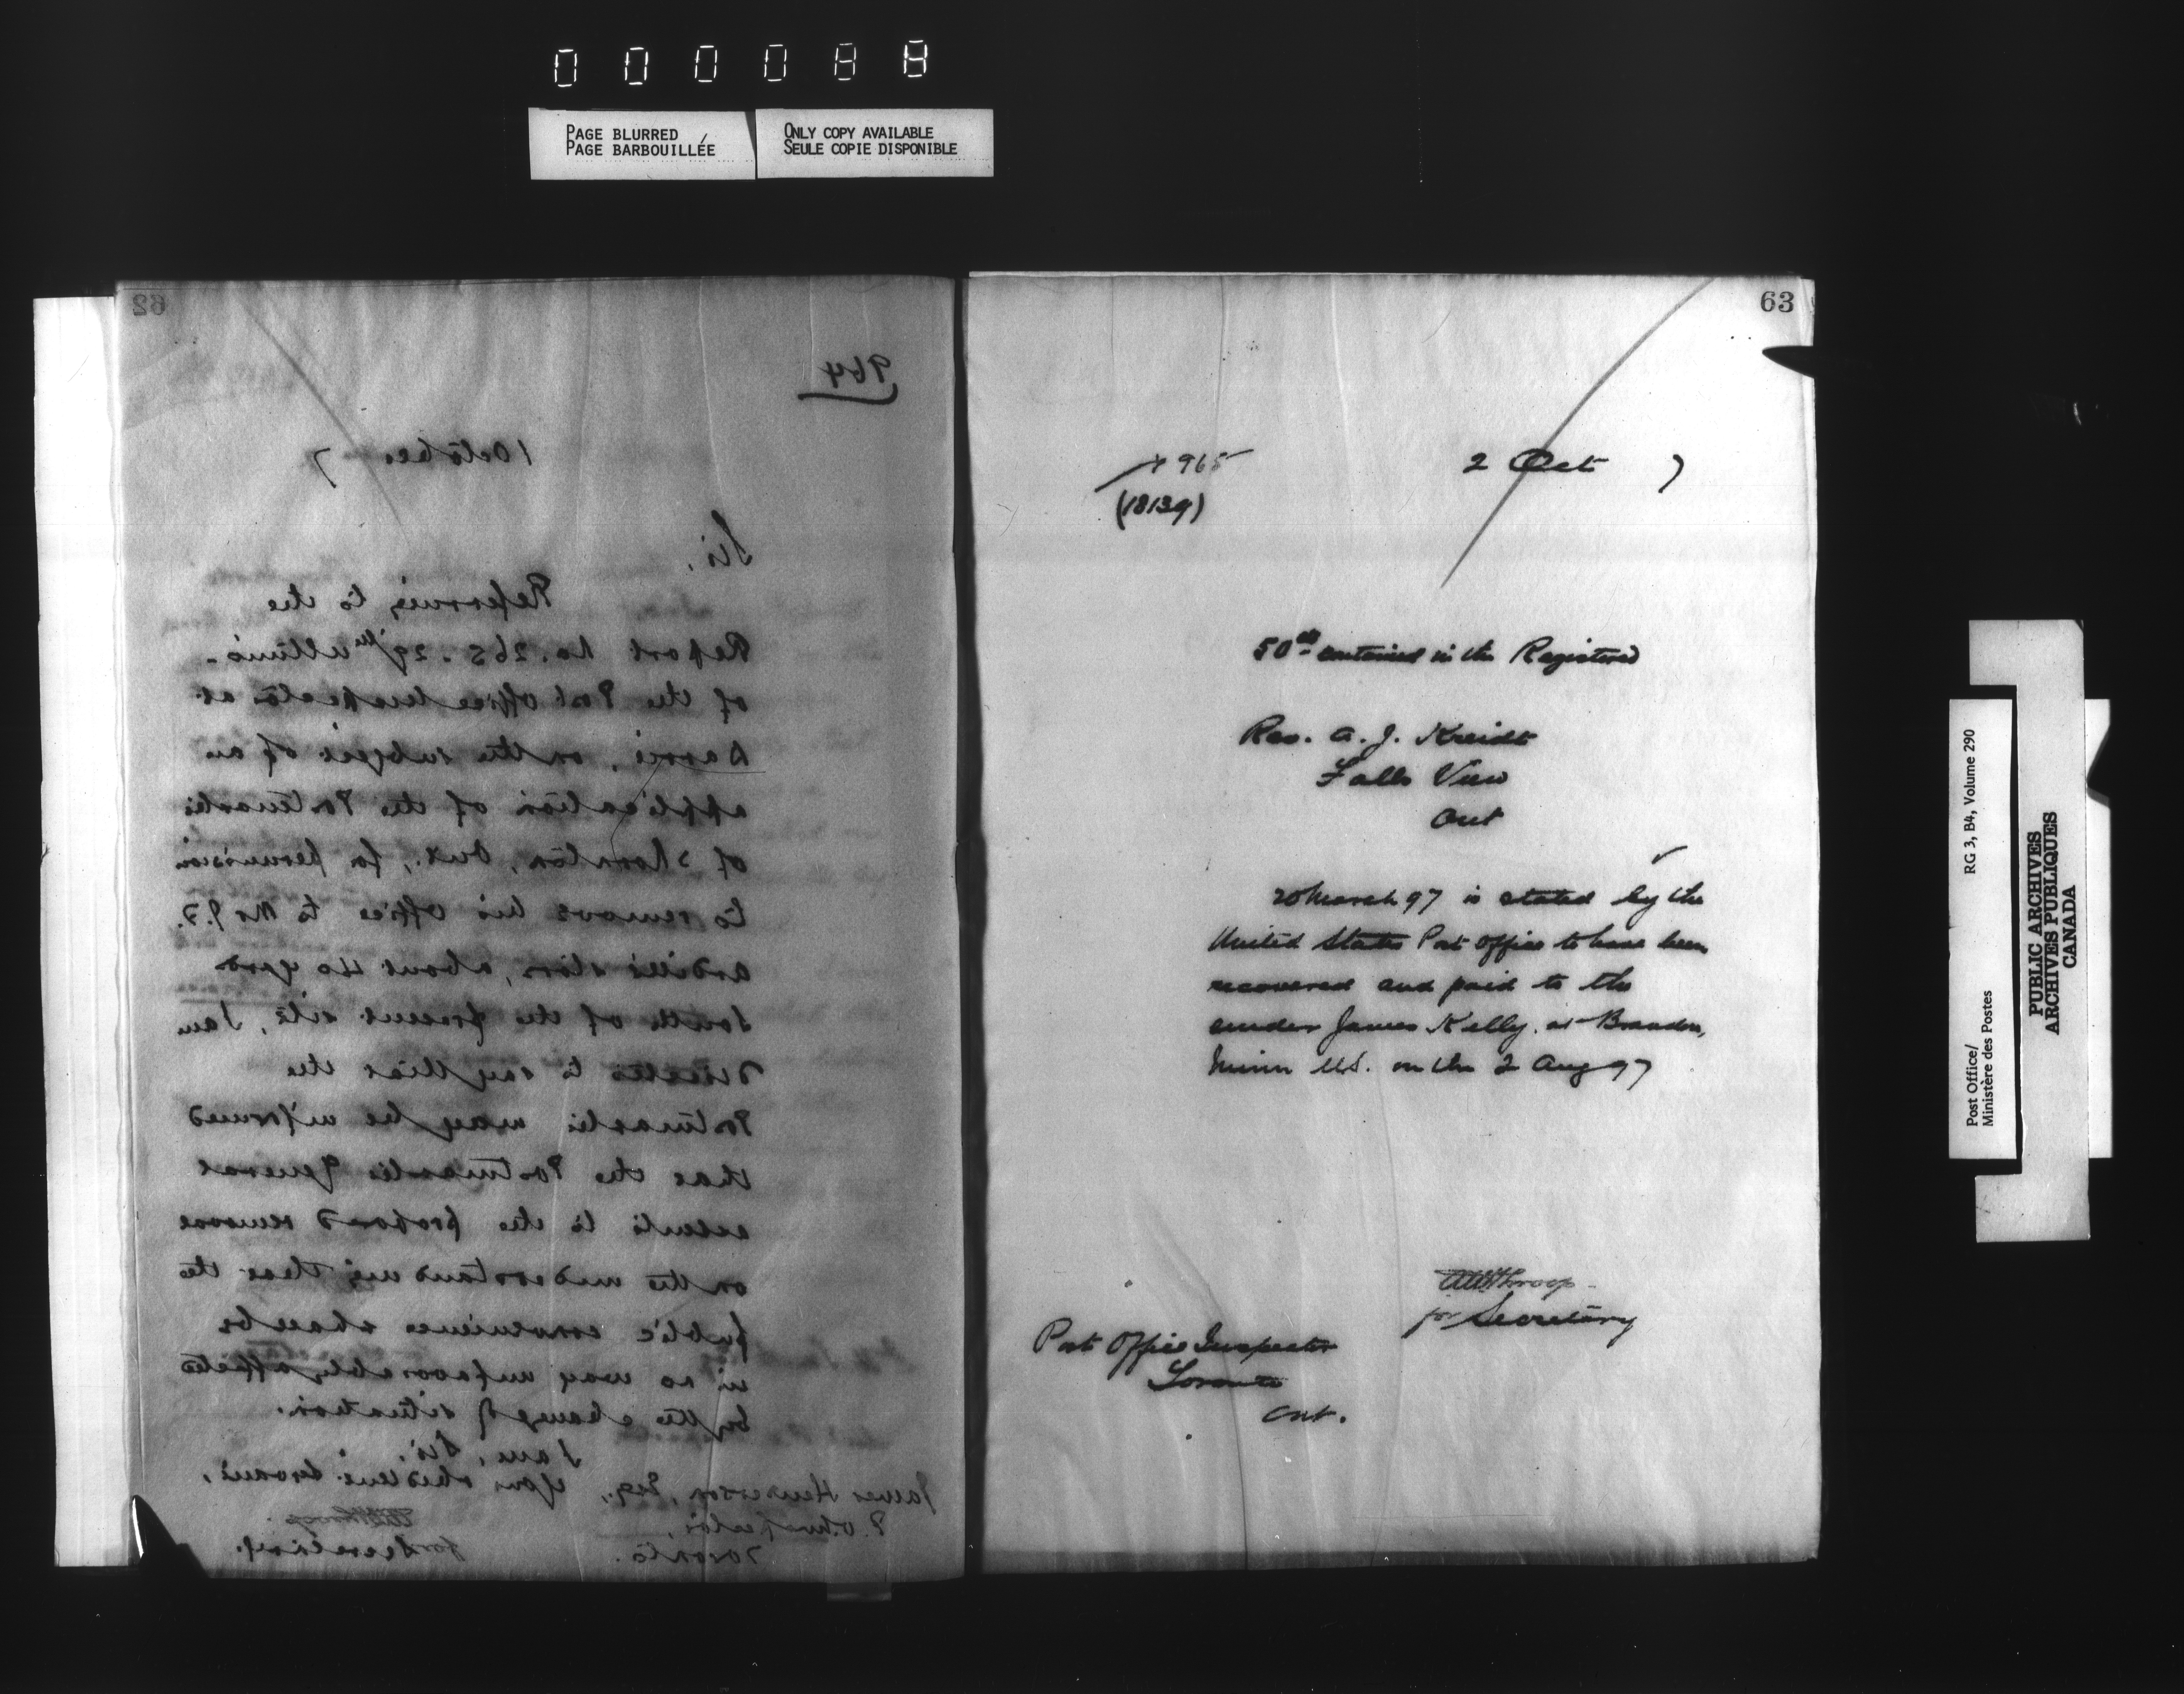 000088
PAGE BLURRED
PAGE BARBOUILLÉE
ONLY COPY AVAILABLE
SEULE COPIE DISPONIBLE
62
964
1 October 7
Sir,
Referring to the
Report No. 265. 29th ultimo.
of the Post Office Inspector at
Barrie, on the subject of an
application of the Postmaster
of Thornton, Ont., for permission
to remove his office to Mr J. T.
store, about 40 yards
South of the present site, I am
directed to say that the
Postmaster may be informed
that the Postmaster General
assents to the proposed removal
on the understanding that the
public convenience shall be
in no way unfavorably affected
by the change of situation.
I am, Sir,
Your obedient Servant,
James Henderson, Esq.,
P.O. Inspector,
Toronto.
for Secretary.
63
965
(1813g)
2 Oct 7
50cts contained in the Registered
Rev. A. J. Kreidt
Falls View
Ont
20 March 97 is stated by the
United States Post Office to have been
recovered and paid to the
sender James Kelly. at Brandon,
Minn U.S. on the 2 Aug 97
AWThroop
for Secretary
Post Office Inspector
Toronto
Ont.
Post Office/
Ministère des Postes
RG 3, B4, Volume 290
PUBLIC ARCHIVES
ARCHIVES PUBLIQUES
CANADA